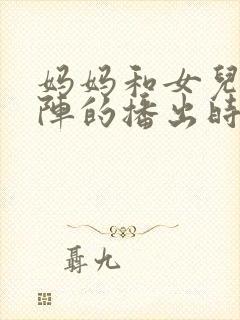 妈妈和女兒
陣的播出時
聶九